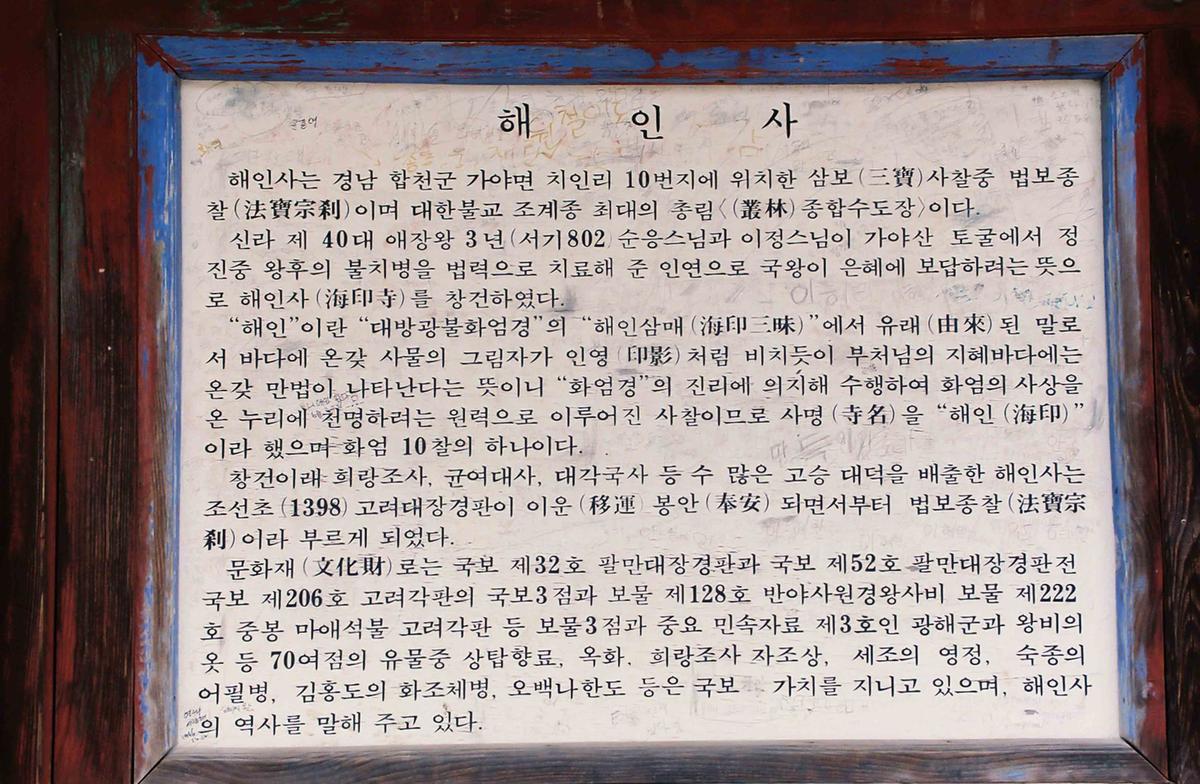 해 인 사
해인사는 경남 합천군 가야면 치인리 10번지에 위치한 삼보(三寶)사찰중 법보종
찰(法寶宗刹)이며 대한불교 조계종 최대의 총림〈(叢林)종합수도장〉이다.
신라 제 40대 애장왕 3년(서기802 순응스님과 이정스님이 가야산 토굴에서 정
진중 왕후의 불치병을 법력으로 치료해 준 인연으로 국왕이 은혜에 보답하려는 뜻으
로 해인사(海印寺)를 창건하였다.
“해인”이란 “대방광불화엄경”의 “해인삼매(海印三昧)”에서 유래(由來)된 말로
서 바다에 온갖 사물의 그림자가 인영(印影)처럼 비치듯이 부처님의 지혜바다에는
온갖 만법이 나타난다는 뜻이니 “화엄경”의 진리에 의치해 수행하여 화엄의 사상을
온 누리에 천명하려는 원력으로 이루어진 사찰이므로 사명(寺名)을 “해인(海印)”
이라 했으며 화엄 10찰의 하나이다.
창건이래 희랑조사, 균여대사, 대각국사 등 수 많은 고승 대덕을 배출한 해인사는
조선초(1398) 고려대장경판이 이운(移運) 봉안(奉安) 되면서부터 법보종찰(法寶宗
刹)이라 부르게 되었다.
문화재(文化財)로는 국보 제32호 팔만대장경판과 국보 제52호 팔만대장경판전
국보 제206호 고려각판의 국보3점과 보물 제128호 반야사원경왕사비 보물 제222
호 중봉 마애석불 고려각판 등 보물3점과 중요 민속자료 제3호인 광해군과 왕비의
옷 등 70여점의 유물중 상탑향료, 옥화, 희랑조사 자조상, 세조의 영정, 숙종의
어필병, 김홍도의 화조체병, 오백나한도 등은 국보 가치를 지니고 있으며, 해인사
의 역사를 말해 주고 있다.